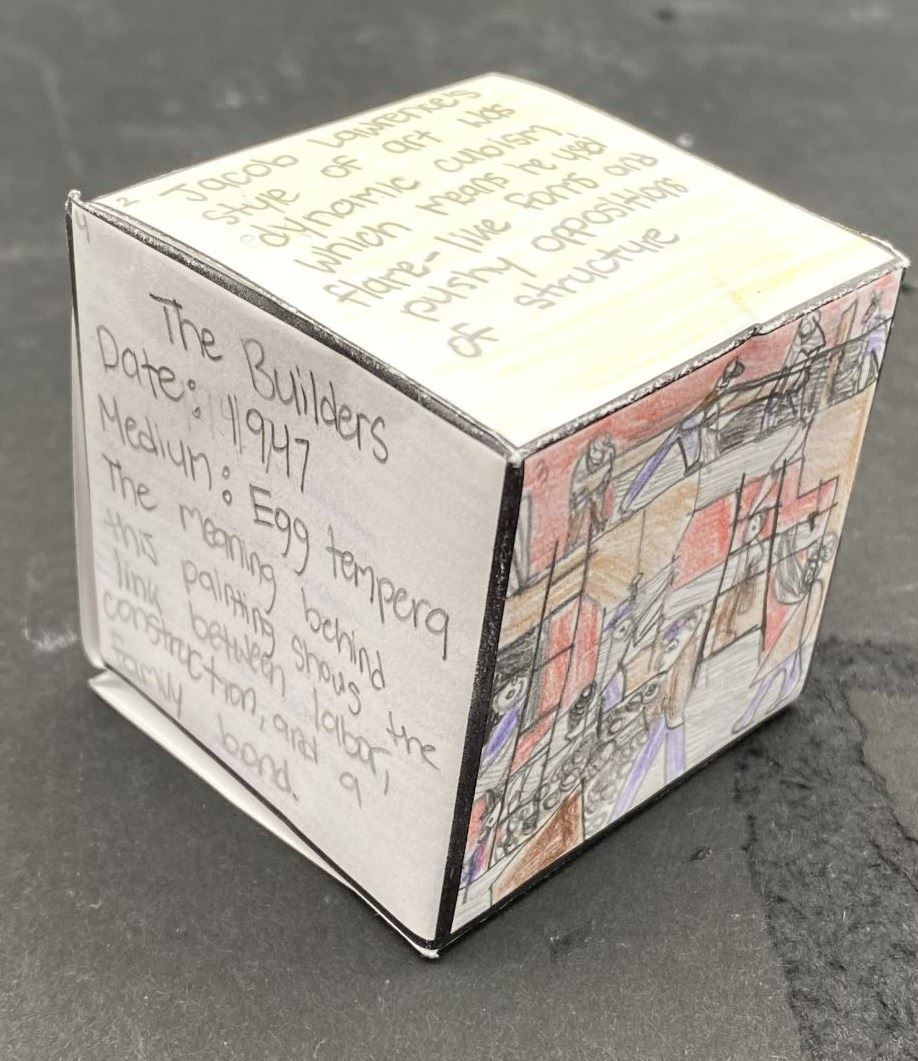 2
Jacob Lawrence's
style of art was
dynamic cubism
which means he used
flare-like forms and
pushy oppositions
of structure
The Builders
Date: 1947
Medium: Egg tempera
The meaning behind
this painting shows the
link between labor,
construction, and a
family bond.
3